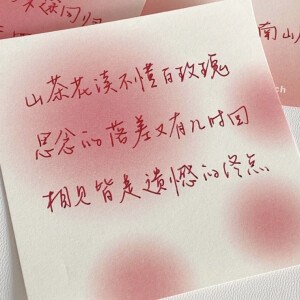 山茶花读不懂白玫瑰
思念的落差又有几时回
相见皆是遗憾的终点
南山